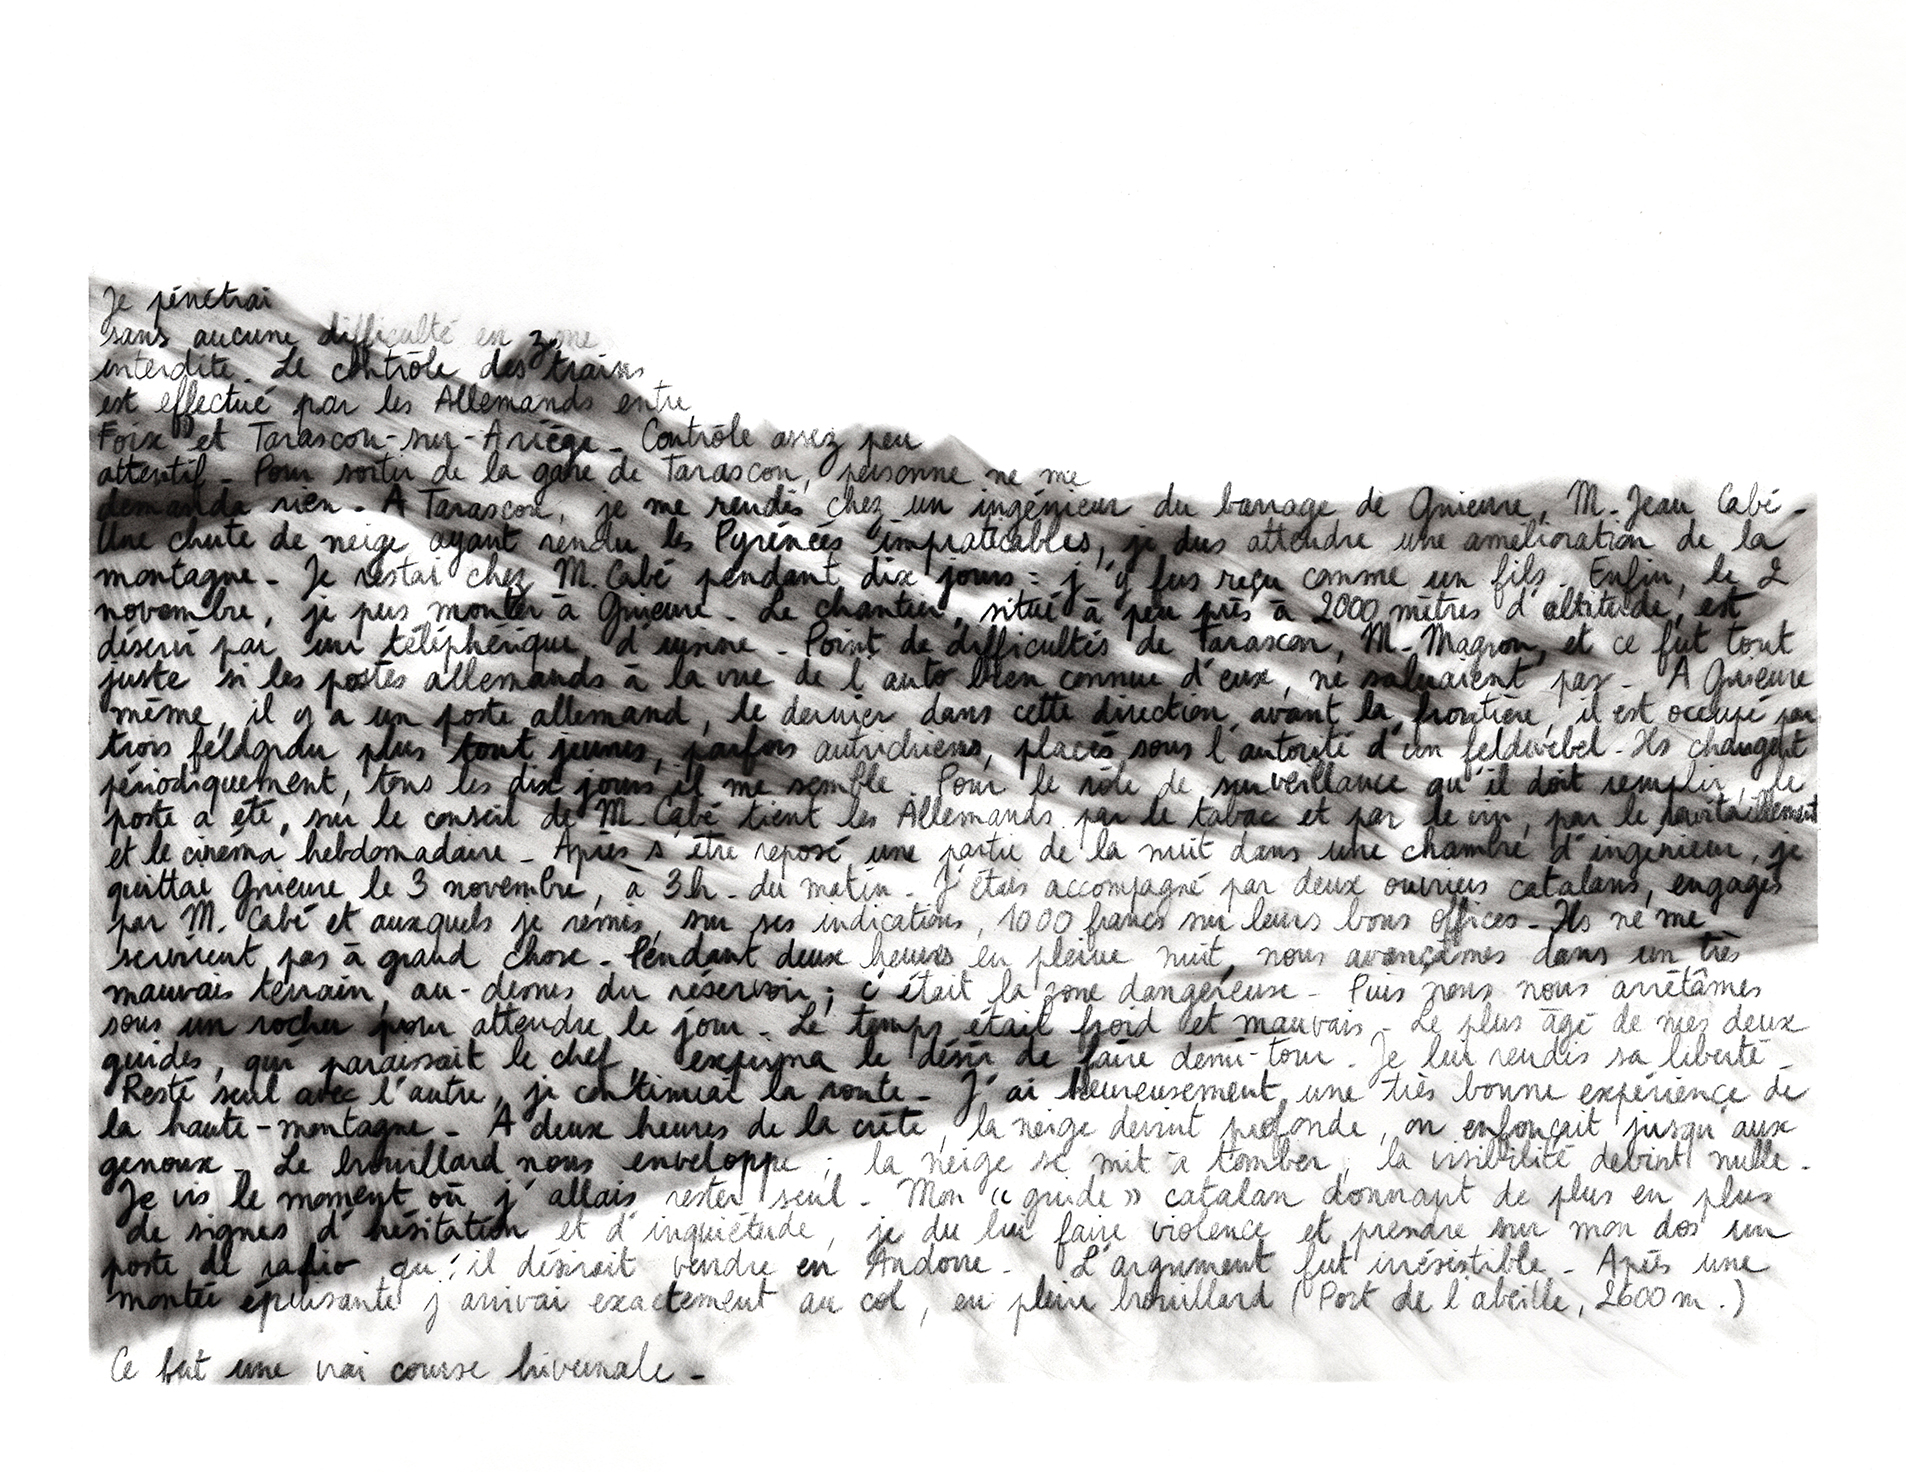 Je pénétrai
sans aucune difficulté en zone
interdite. Le contrôle des trains
est effectué par les Allemands entre
Foix et Tarascon-sur-Ariège - Contrôle assez peu
attentif - Pour sortir de la gare de Tarascon, personne ne me
demanda rien - A Tarascon, je me rendis chez un ingénieur du barrage de Gnieure, M. Jean Cabé -
Une chute de neige ayant rendu les Pyrénées impraticables, je dus attendre une amélioration de la
montagne - Je restai chez M. Cabé pendant dix jours : j'y fus reçu comme un fils. Enfin, le 2
novembre, je pus monter à Gnieure - Le chantier, situé à peu près à 2000 mètres d'altitude, est
déservi par un téléphérique d'usine - Point de difficultés de Tarascon, M. Magron, et ce fut tout
juste si les postes allemands à la vue de l'auto bien connue d'eux, ne saluaient pas - A Gnieure
même, il y a un poste allemand, le dernier dans cette direction avant la frontière, il est occupé par
trois feldgrau plus tout jeunes, parfois autrichiens, placés sous l'autorité d'un feldwebel - Ils changent
périodiquement, tous les dix jours il me semble. Pour le rôle de surveillance qu'il doit remplir, le
poste a été, sur le conseil de M. Cabé tient les Allemands par le tabac et par le vin, par le ravitaillement
et le cinéma hebdomadaire - Après s'être reposé une partie de la nuit dans une chambre d'ingénieur, je
quittai Gnieure le 3 novembre, à 3h. du matin - J'étais accompagné par deux ouvriers catalans, engagés
par M. Cabé et auxquels je remis, sur ses indications, 1000 francs sur leurs bons offices - Ils ne me
servirent pas à grand chose - Pendant deux heures en pleine nuit, nous avançâmes dans un très
mauvais terrain, au-dessus du réservoir ; c'était la zone dangereuse - Puis nous nous arrêtâmes
sous un rocher pour attendre le jour - Le temps était froid et mauvais - Le plus âgé de mes deux
guides, qui paraissait le chef, exprima le désir de faire demi-tour. Je lui rendis sa liberté -
Resté seul avec l'autre, je continuai la route - J'ai heureusement une très bonne expérience de
la haute-montagne - A deux heures de la crête, la neige devint profonde, on enfonçait jusqu'aux
genoux - Le brouillard nous enveloppe ; la neige se mit à tomber, la visibilité devint nulle -
Je vis le moment où j'allais rester seul - Mon « guide » catalan donnant de plus en plus
de signes d'hésitation et d'inquiétude, je du lui faire violence et prendre sur mon dos un
poste de radio qu'il désirait vendre en Andorre - L'argument fut irrésistible - Après une
montée épuisante j'arrivai exactement au col, en plein brouillard (Port de l'abeille, 2600 m.)
Ce fut une vrai course hivernale -